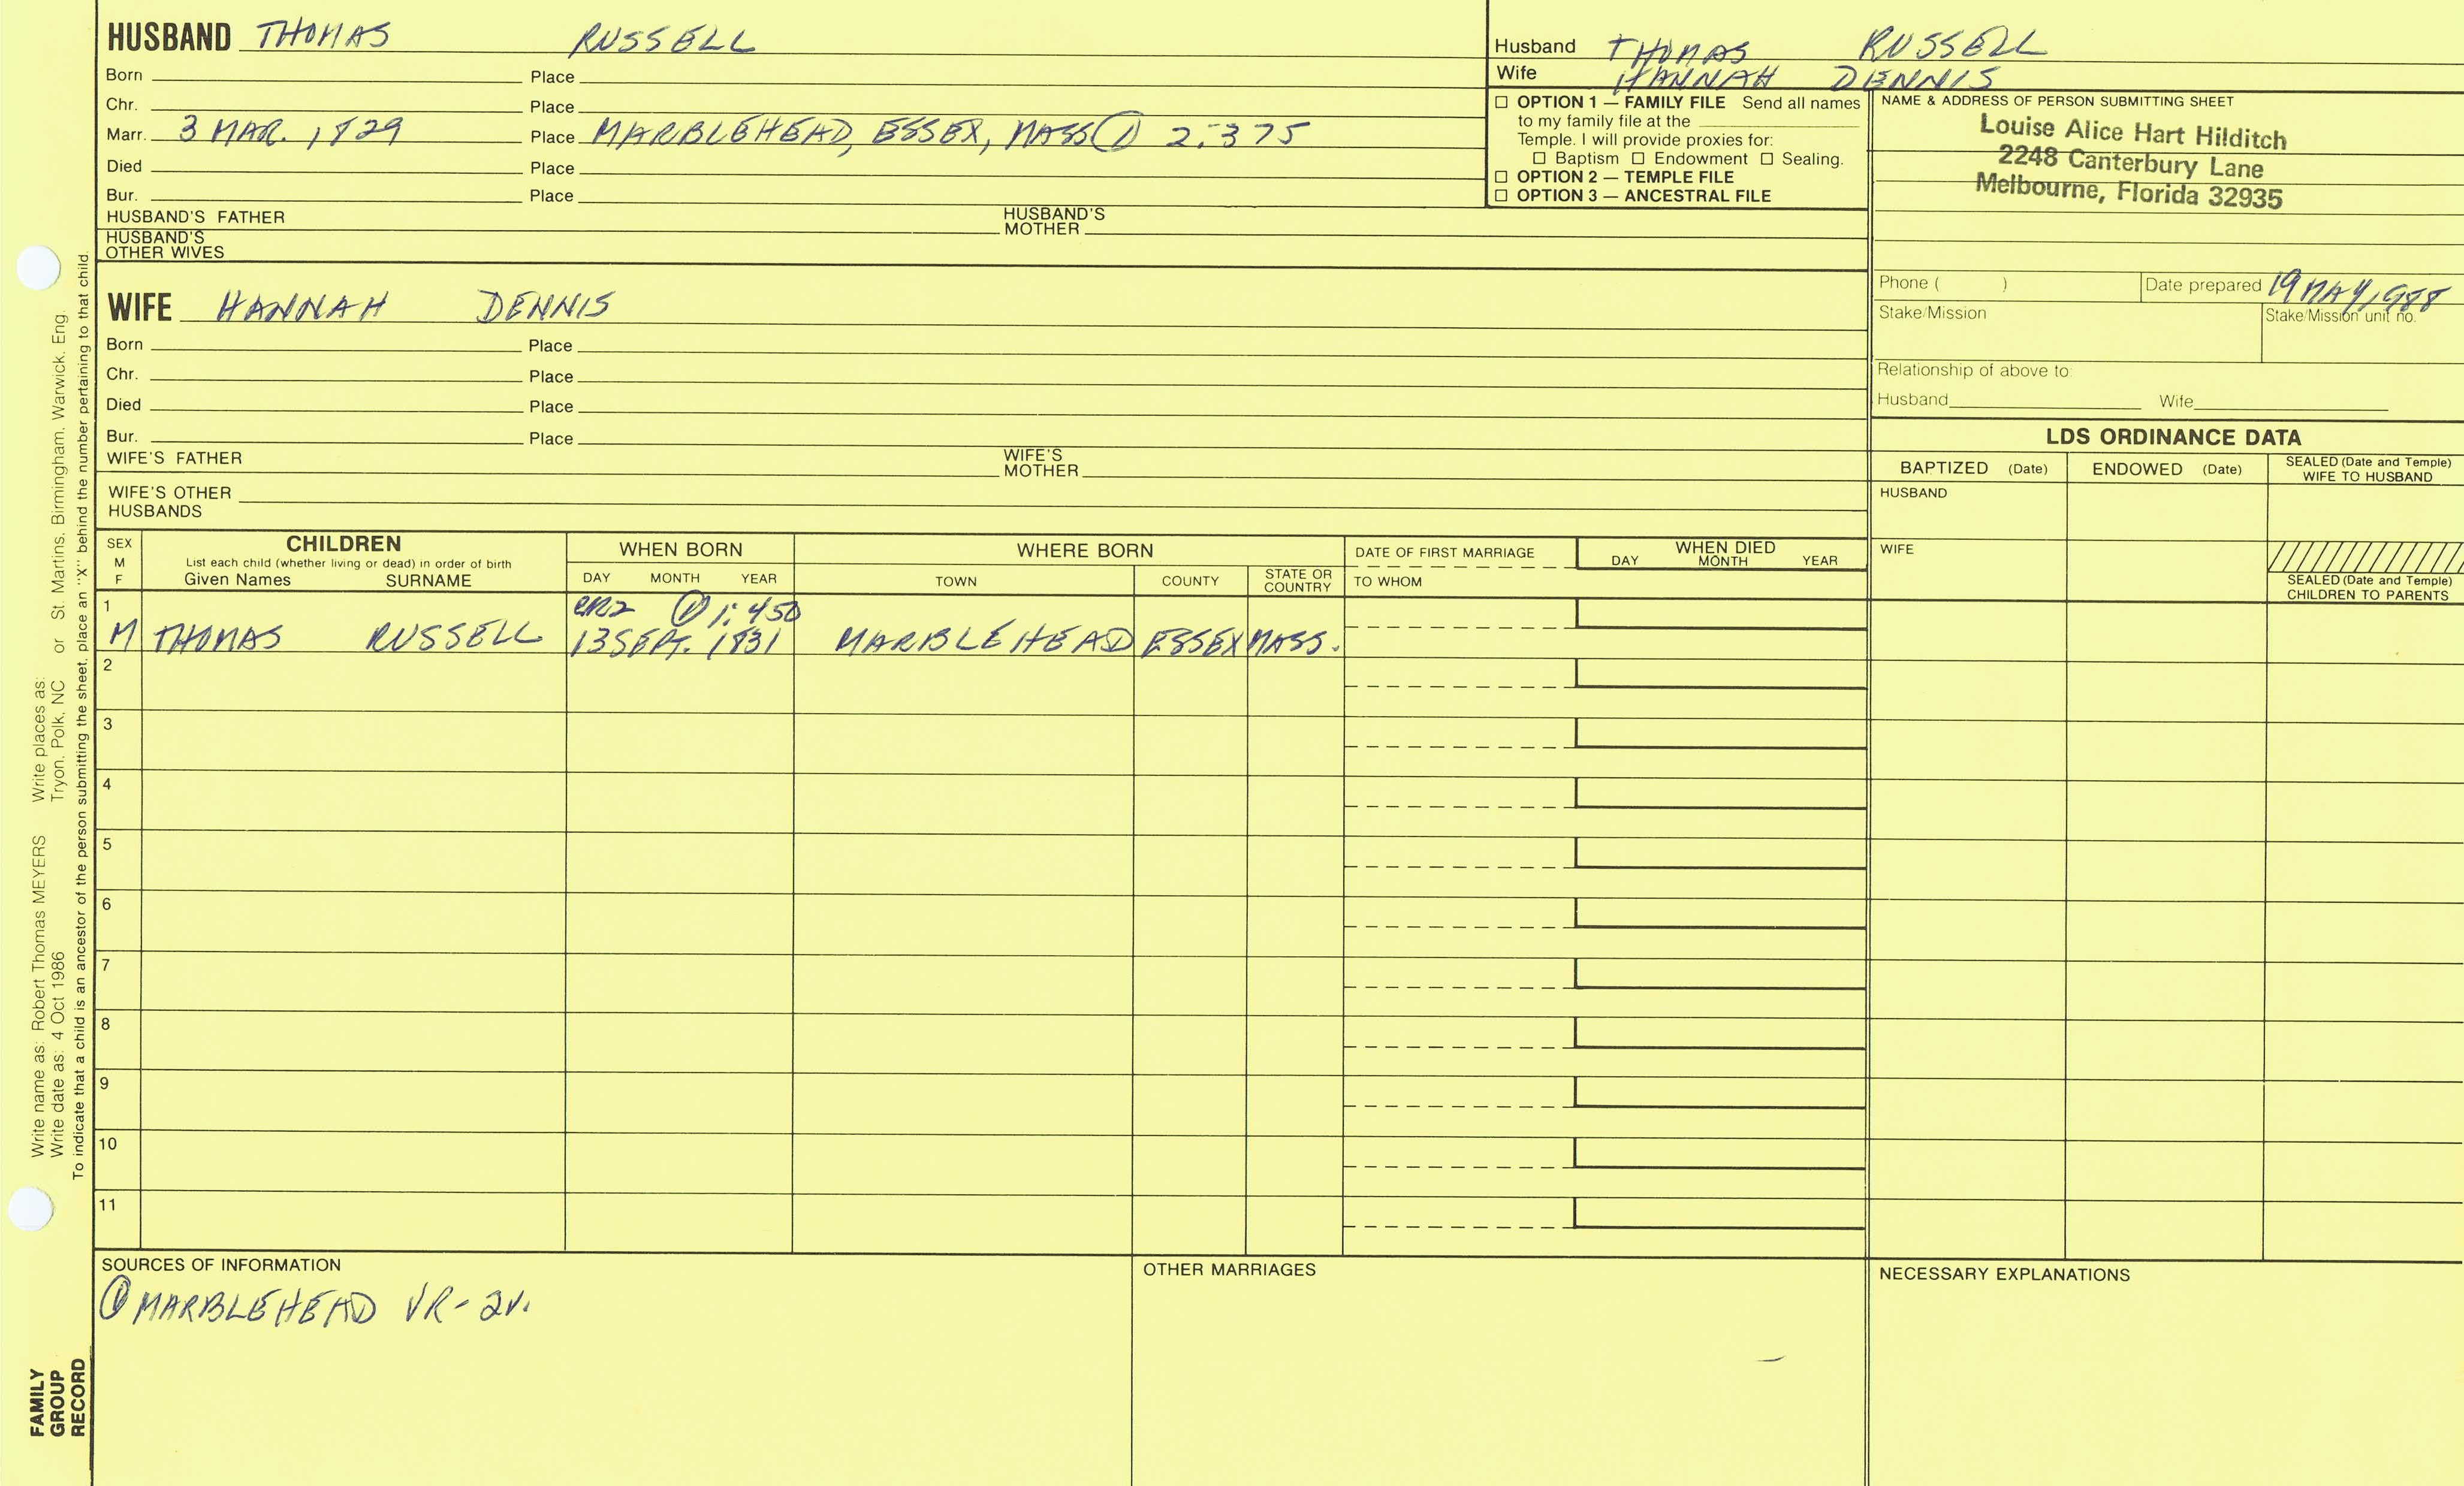 HUSBAND THOMAS RUSSELL
Born Place
Chr. Place
Marr. 3 MAR. 1829 Place MARBLEHEAD, ESSEX, MASS ① 2:375
Died Place
Bur. Place
HUSBAND'S FATHER HUSBAND'S MOTHER
HUSBAND'S OTHER WIVES
Husband THOMAS RUSSELL
Wife HANNAH DENNIS
☐ OPTION 1 — FAMILY FILE Send all names
to my family file at the
Temple. I will provide proxies for:
☐ Baptism ☐ Endowment ☐ Sealing.
☐ OPTION 2 — TEMPLE FILE
☐ OPTION 3 — ANCESTRAL FILE
NAME & ADDRESS OF PERSON SUBMITTING SHEET
Louise Alice Hart Hilditch
2248 Canterbury Lane
Melbourne, Florida 32935
Phone ( ) Date prepared 19 MAY 1988
Stake/Mission Stake/Mission unit no.
Relationship of above to:
Husband Wife
WIFE HANNAH DENNIS
Born Place
Chr. Place
Died Place
Bur. Place
WIFE'S FATHER WIFE'S MOTHER
WIFE'S OTHER HUSBANDS
LDS ORDINANCE DATA
BAPTIZED (Date) ENDOWED (Date) SEALED (Date and Temple) WIFE TO HUSBAND
HUSBAND
WIFE
SEALED (Date and Temple) CHILDREN TO PARENTS
SEX M F
CHILDREN
List each child (whether living or dead) in order of birth
Given Names SURNAME
WHEN BORN
DAY MONTH YEAR
WHERE BORN
TOWN COUNTY STATE OR COUNTRY
DATE OF FIRST MARRIAGE
TO WHOM
WHEN DIED
DAY MONTH YEAR
1 ① 1:450
M THOMAS RUSSELL 13 SEPT. 1831 MARBLEHEAD ESSEX MASS.
2
3
4
5
6
7
8
9
10
11
SOURCES OF INFORMATION
① MARBLEHEAD VR-2V.
OTHER MARRIAGES
NECESSARY EXPLANATIONS
Write name as: Robert Thomas MEYERS Write places as:
Write date as: 4 Oct 1986 Tryon, Polk, NC or St. Martins, Birmingham, Warwick, Eng.
To indicate that a child is an ancestor of the person submitting the sheet, place an "X" behind the number pertaining to that child.
FAMILY
GROUP
RECORD